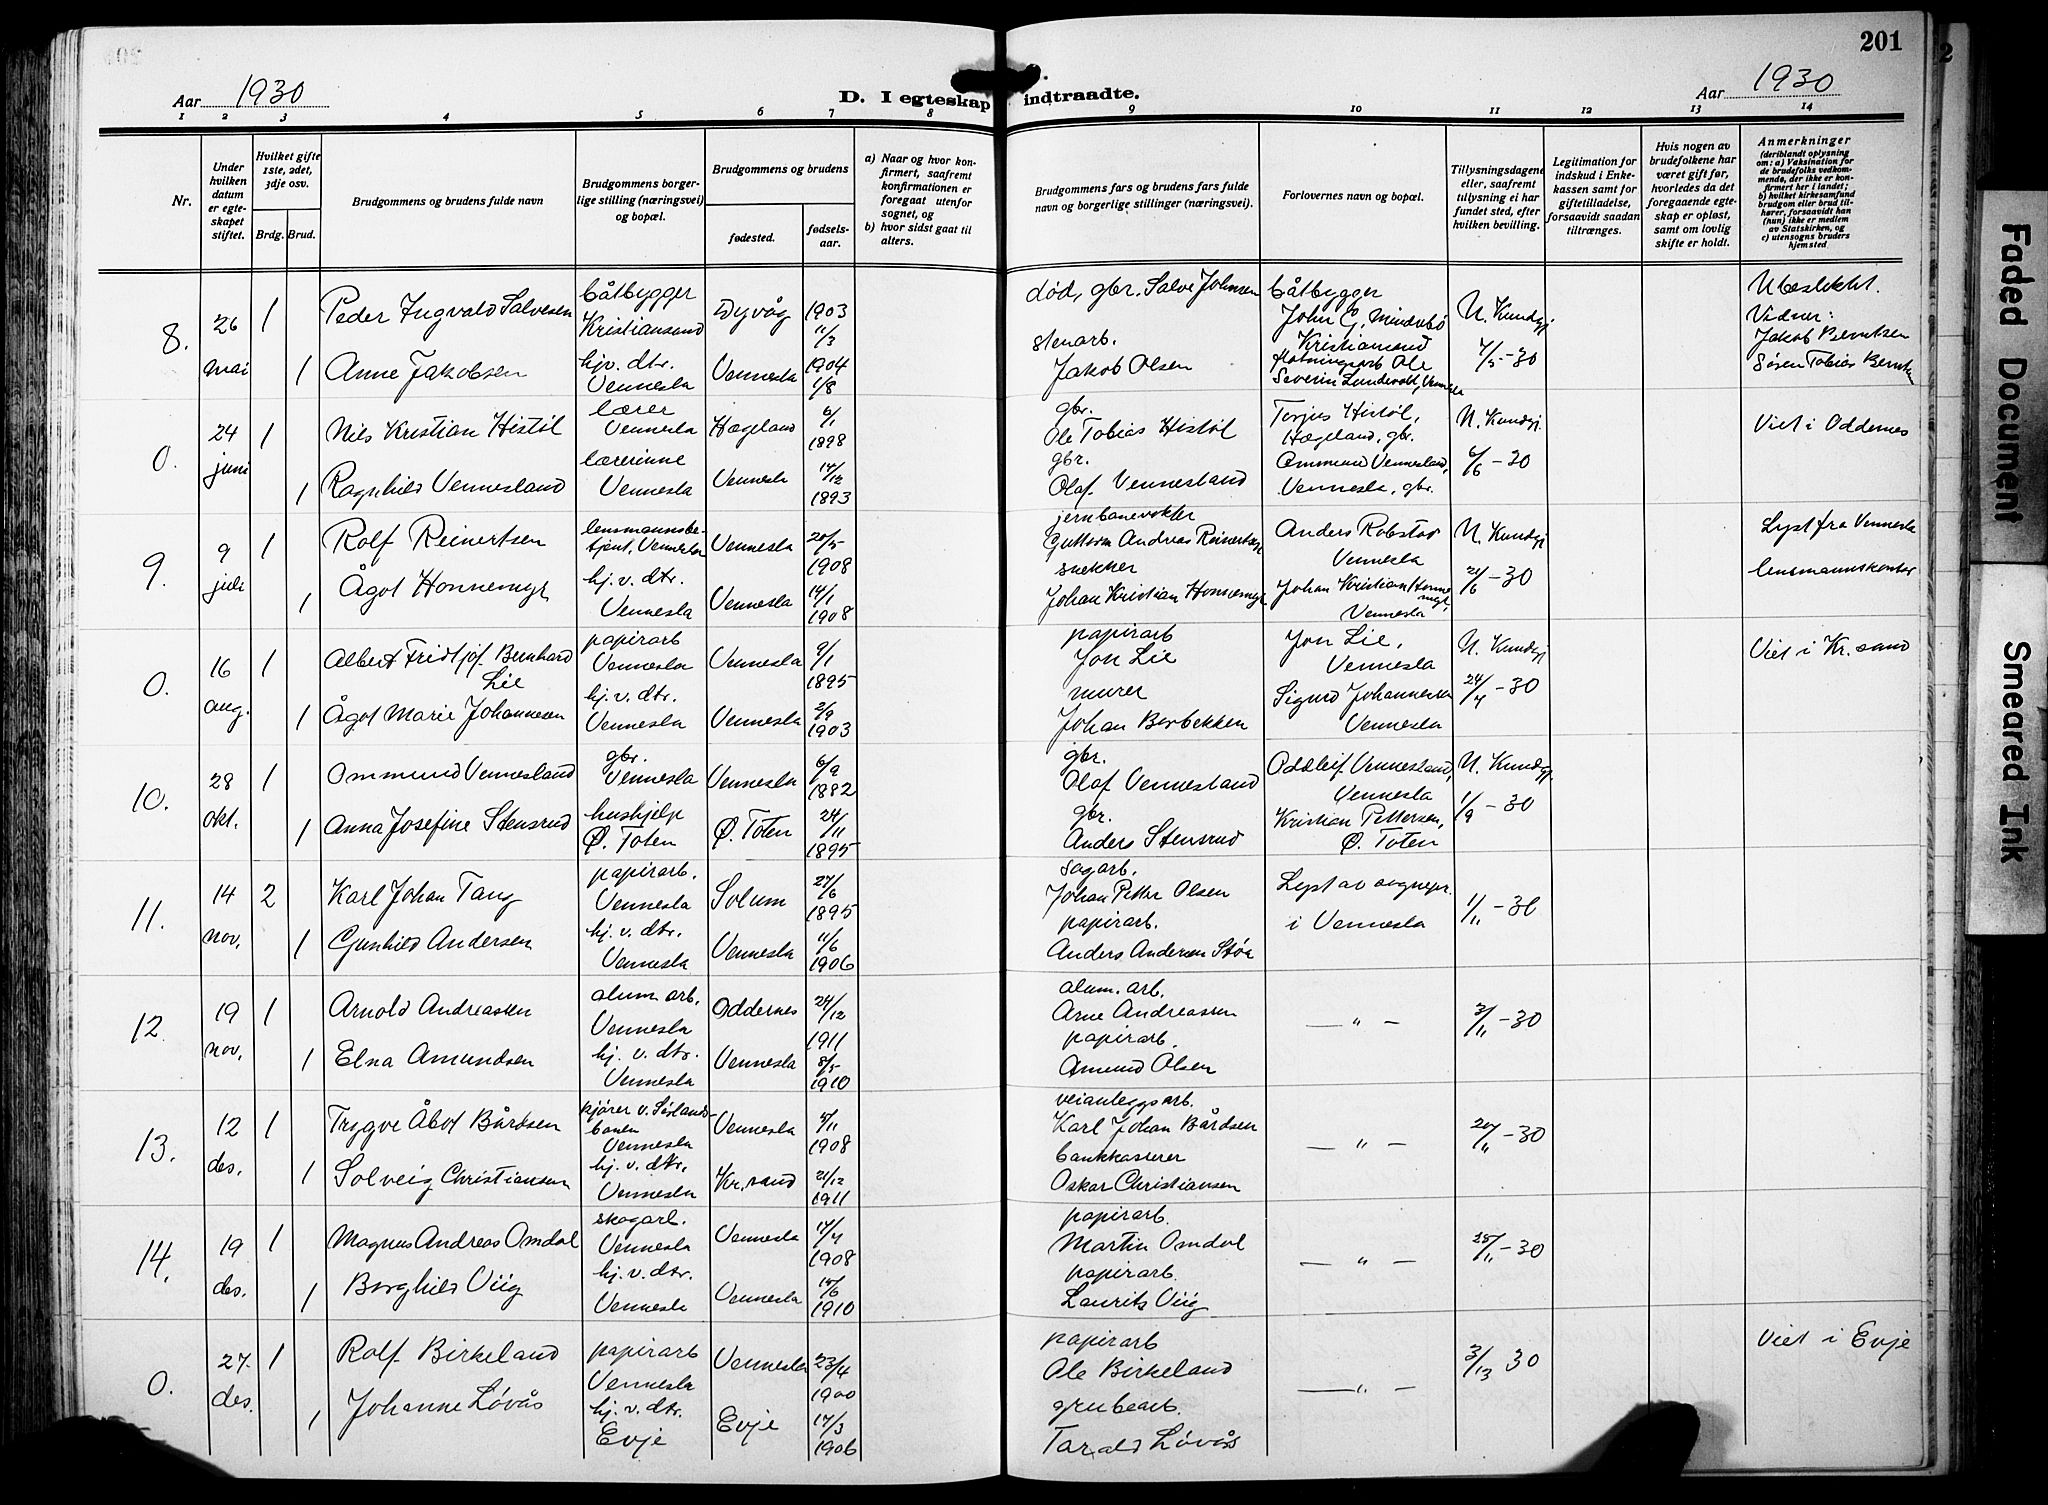 201
Aar 1930
D. I egteskap indtraadte.
Aar 1930
1 2 3 4 5 6 7 8 9 10 11 12 13 14
Nr.
Under hvilken datum er egteskapet stiftet.
Hvilket gifte 1ste, 2det, 3dje osv.
Brdg. Brud.
Brudgommens og brudens fulde navn
Brudgommens borgerlige stilling (næringsvei) og bopæl.
Brudgommens og brudens
fødested.
fødselsaar.
a) Naar og hvor konfirmert, saafremt konfirmationen er foregaat utenfor sognet, og
b) hvor sidst gaat til alters.
Brudgommens fars og brudens fars fulde navn og borgerlige stillinger (næringsvei).
Forlovernes navn og bopæl.
Tillysningsdagene eller, saafremt tillysning ei har fundet sted, efter hvilken bevilling.
Legitimation for indskud i Enkekassen samt for giftetilladelse, forsaavidt saadan tiltrænges.
Hvis nogen av brudefolkene har været gift før, hvorledes da det foregaaende egteskap er opløst, samt om lovlig skifte er holdt.
Anmerkninger
(deriblandt oplysning om: a) Vaksination for de brudefolks vedkommende, der ikke er konfirmert her i landet; b) hvilket kirkesamfund brudgom eller brud tilhører, forsaavidt han (hun) ikke er medlem av Statskirken, og c) utensogns bruders hjemsted.
8. 26 mai 1 Peder Ingvald Salvesen båtbygger Kristiansand Dyvåg 1903 11/3 død, gbr. Salve Johnsen båtbygger John G. Mindebø Kristiansand N. Kundgj. 7/5-30 Ubeslektet. Vidner: Jakob Berntsen
1 Anne Jakobsen hjv. dtr. Vennesla Vennesla 1904 1/8 stenarb. Jakob Olsen fløtningsarb Ole Severin Lundevold, Vennesla Søren Tobias Berntsen
0. 24 juni 1 Nils Kristian Histøl lærer Vennesla Hægeland 6/1 1898 gbr. Ole Tobias Histøl Terjus Histøl, Hægeland, gbr. N. Kundgj. 6/6-30 Viet i Oddernes
1 Ragnhild Vennesland lærerinne Vennesla Vennesla 14/12 1893 gbr. Olaf Vennesland Ommund Vennesland, Vennesla, gbr.
9. 9 juli 1 Rolf Reinertsen lensmannsbetjent, Vennesla Vennesla 20/5 1908 jernbanevokter Guttorm Andreas Reinertsen Anders Robstad Vennesla N. Kundgj 21/6-30 Lyst fra Vennesla lensmannskontor
1 Ågot Honnemyr hj. v. dtr. Vennesla Vennesla 14/1 1908 snekker Johan Kristian Honnemyr Johan Kristian Honnemyr, Vennesla
0. 16 aug. 1 Albert Fridtjof Bernhard Lie papirarb Vennesla Vennesla 9/1 1895 papirarb Jon Lie Jon Lie, Vennesla N. Kundgj 24/7-30 Viet i Kr. sand
1 Ågot Marie Johannesen hj. v. dtr. Vennesla Vennesla 2/9 1903 murer Johan Berbekken Sigurd Johannesen Vennesla
10. 28 okt. 1 Ommund Vennesland gbr. Vennesla Vennesla 6/9 1882 gbr. Olaf Vennesland Oddleif Vennesland, Vennesla N. Kundgj. 1/9-30
1 Anna Josefine Stensrud hushjelp Ø. Toten Ø. Toten 24/11 1895 gbr. Anders Stensrud Kristian Pettersen, Ø. Toten
11. 14 nov. 2 Karl Johan Tang papirarb. Vennesla Solum 27/6 1895 sagarb. Johan Petter Olsen Lyst av sognepr. i Vennesla 1/11-30
1 Gunhild Andersen hj. v. dtr. Vennesla Vennesla 11/6 1906 papirarb. Anders Andersen Støa
12. 19 nov. 1 Arnold Andreassen alum. arb. Vennesla Oddernes 24/12 1911 alum. arb. Arne Andreassen — " — 3/11-30
1 Elna Amundsen hj. v. dtr. Vennesla Vennesla 8/5 1910 papirarb. Amund Olsen
13. 12 des. 1 Trygve Åbot Bårdsen kjører v. Sørlandsbanen Vennesla Vennesla 5/11 1908 veianleggsarb. Karl Johan Bårdsen — " — 20/11-30
1 Solveig Christiansen hj. v. dtr. Vennesla Kr. sand 21/12 1911 bankkasserer Oskar Christiansen
14. 19 des. 1 Magnus Andreas Omdal skogarb. Vennesla Vennesla 17/4 1908 papirarb. Martin Omdal — " — 25/11-30
1 Borghild Viig hj. v. dtr. Vennesla Vennesla 15/6 1910 papirarb. Laurits Viig
0. 27. des. 1 Rolf Birkeland papirarb Vennesla Vennesla 23/4 1900 papirarb Ole Birkeland — " — 3/13 30 Viet i Evje
1 Johanne Løvås hj. v. dtr. Evje Evje 17/3 1906 grubearb. Tarald Løvås
Faded Document
Smeared Ink